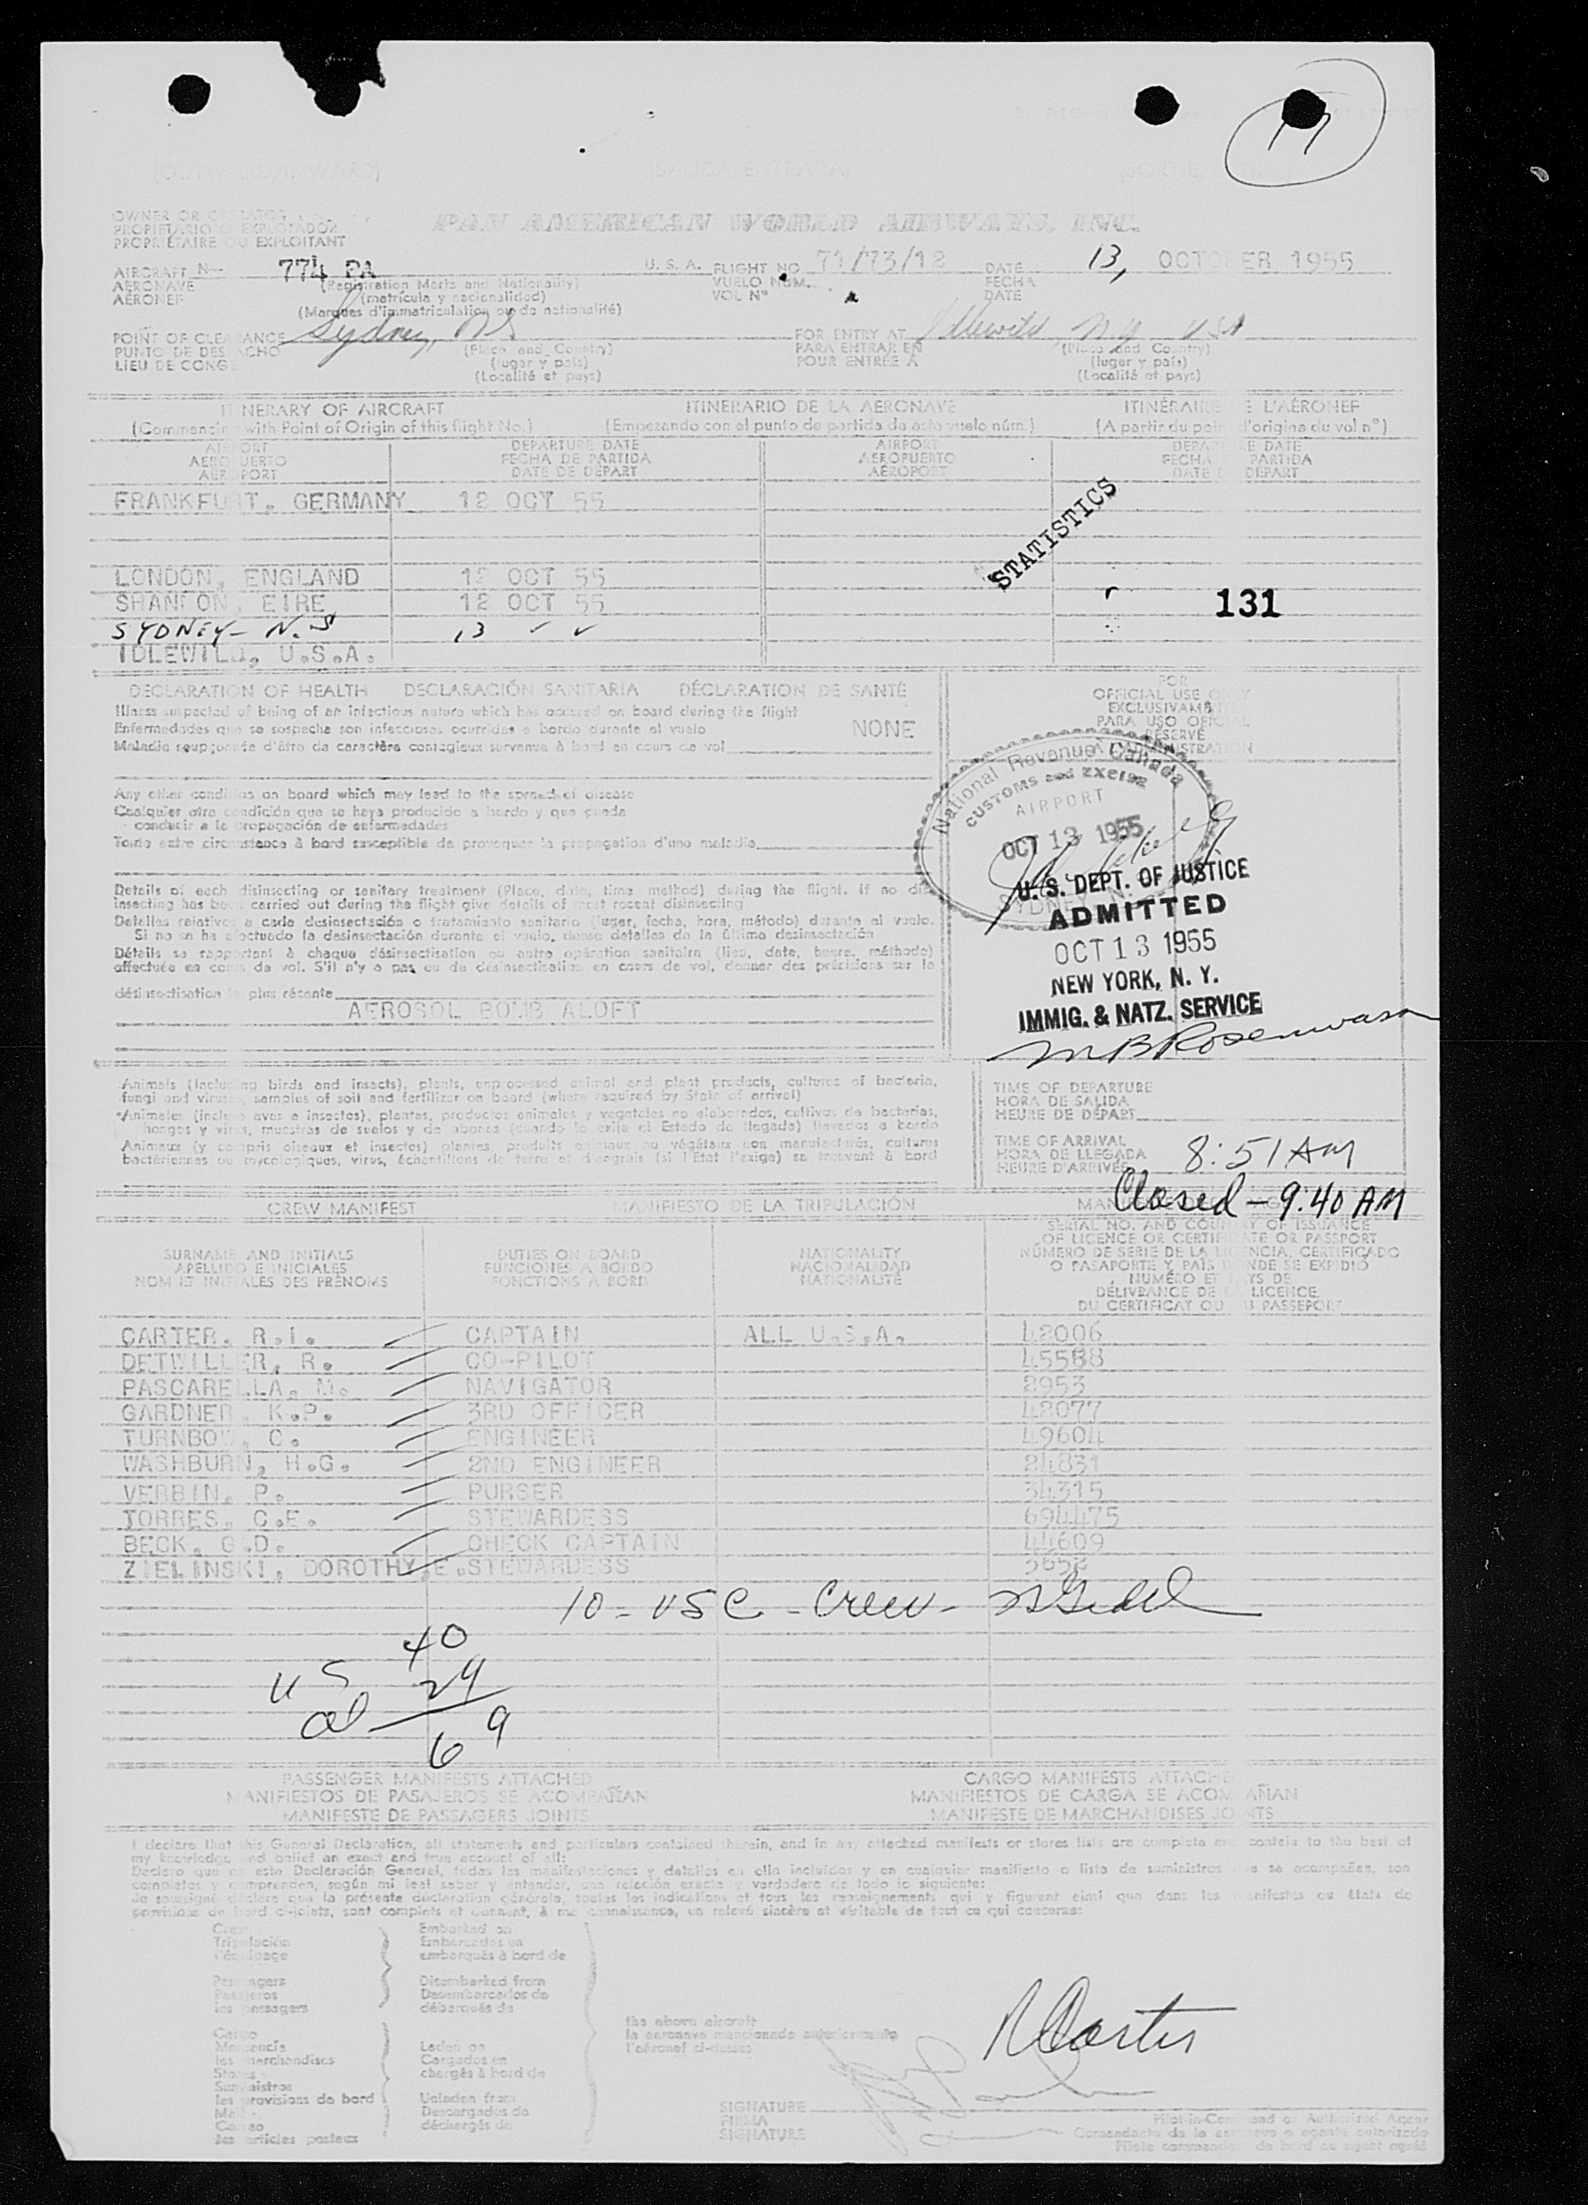 17
OWNER OR OPERATOR
PROPIETARIO O EXPLOTADOR
PROPRIÉTAIRE OU EXPLOITANT
PAN AMERICAN WORLD AIRWAYS, INC.
AIRCRAFT N 774 PA U. S. A. FLIGHT NO. 71/73/12 DATE 13, OCTOBER 1955
AERONAVE (Registration Marks and Nationality) VUELO NÚM. FECHA
AÉRONEF (matrícula y nacionalidad) VOL Nº DATE
(Marques d'immatriculation ou de nationalité)
POINT OF CLEARANCE Sydney, NS FOR ENTRY AT Idlewild, NY USA
PUNTO DE DESPACHO (Place and Country) PARA ENTRAR EN (Place and Country)
LIEU DE CONGÉ (lugar y país) POUR ENTRÉE À (lugar y país)
(Localité et pays) (Localité et pays)
ITINERARY OF AIRCRAFT ITINERARIO DE LA AERONAVE ITINÉRAIRE DE L'AÉRONEF
(Commencing with Point of Origin of this flight No.) (Empezando con el punto de partida de este vuelo núm.) (A partir du point d'origine du vol nº)
AIRPORT DEPARTURE DATE AIRPORT DEPARTURE DATE
AEROPUERTO FECHA DE PARTIDA AEROPUERTO FECHA DE PARTIDA
AÉROPORT DATE DE DÉPART AÉROPORT DATE DE DÉPART
FRANKFURT, GERMANY 12 OCT 55
STATISTICS
LONDON, ENGLAND 12 OCT 55
SHANNON, EIRE 12 OCT 55
131
SYDNEY - N.S 13 ✓ ✓
IDLEWILD, U.S.A.
DECLARATION OF HEALTH DECLARACIÓN SANITARIA DÉCLARATION DE SANTÉ
Illness suspected of being of an infectious nature which has occurred on board during the flight
Enfermedades que se sospecha son infecciosas ocurridas a bordo durante el vuelo NONE
Maladie soupçonnée d'être de caractère contagieux survenue à bord en cours de vol
FOR
OFFICIAL USE ONLY
EXCLUSIVAMENTE
PARA USO OFICIAL
RÉSERVÉ
À L'ADMINISTRATION
Any other condition on board which may lead to the spread of disease
Cualquier otra condición que se haya producido a bordo y que pueda
conducir a la propagación de enfermedades
Toute autre circonstance à bord susceptible de provoquer la propagation d'une maladie
National Revenue Canada
CUSTOMS and EXCISE
AIRPORT
OCT 13 1955
SYDNEY N.S.
Details of each disinsecting or sanitary treatment (Place, date, time method) during the flight. If no dis-
insecting has been carried out during the flight give details of most recent disinsecting
Detalles relativos a cada desinsectación o tratamiento sanitario (lugar, fecha, hora, método) durante el vuelo.
Si no se ha efectuado la desinsectación durante el vuelo, dense detalles de la última desinsectación
Détails se rapportant à chaque désinsectisation ou autre opération sanitaire (lieu, date, heure, méthode)
effectuée en cours de vol. S'il n'y a pas eu de désinsectisation en cours de vol, donner des précisions sur la
désinsectisation la plus récente
AEROSOL BOMB ALOFT
U. S. DEPT. OF JUSTICE
ADMITTED
OCT 13 1955
NEW YORK, N. Y.
IMMIG. & NATZ. SERVICE
Animals (including birds and insects), plants, unprocessed animal and plant products, cultures of bacteria,
fungi and viruses, samples of soil and fertilizer on board (where required by State of arrival)
Animales (incluso aves e insectos), plantas, productos animales y vegetales no elaborados, cultivos de bacterias,
hongos y virus, muestras de suelos y de abonos (cuando lo exija el Estado de llegada) llevados a bordo
Animaux (y compris oiseaux et insectes) plantes, produits animaux ou végétaux non manufacturés, cultures
bactériennes ou mycologiques, virus, échantillons de terre et d'engrais (si l'État l'exige) se trouvant à bord
TIME OF DEPARTURE
HORA DE SALIDA
HEURE DE DÉPART
TIME OF ARRIVAL
HORA DE LLEGADA 8:51 AM
HEURE D'ARRIVÉE
Closed - 9:40 AM
CREW MANIFEST MANIFIESTO DE LA TRIPULACIÓN
SURNAME AND INITIALS DUTIES ON BOARD NATIONALITY SERIAL NO. AND COUNTRY OF ISSUANCE
APELLIDO E INICIALES FUNCIONES A BORDO NACIONALIDAD OF LICENCE OR CERTIFICATE OR PASSPORT
NOM ET INITIALES DES PRÉNOMS FONCTIONS À BORD NATIONALITÉ NÚMERO DE SERIE DE LA LICENCIA, CERTIFICADO
O PASAPORTE Y PAÍS DONDE SE EXPIDIÓ
NUMÉRO ET PAYS DE
DÉLIVRANCE DE LA LICENCE,
DU CERTIFICAT OU DU PASSEPORT
CARTER, R.I. CAPTAIN ALL U.S.A. 42006
DETWILLER, R. CO-PILOT 45588
PASCARELLA, M. NAVIGATOR 2953
GARDNER, K.P. 3RD OFFICER 42077
TURNBOW, C. ENGINEER 49604
WASHBURN, H.G. 2ND ENGINEER 24831
VERBIN, P. PURSER 34315
TORRES, C.E. STEWARDESS 694475
BECK, G.D. CHECK CAPTAIN 44609
ZIELINSKI, DOROTHY E. STEWARDESS 5652
10 - USC - Crew -
40
US 29
al
69
PASSENGER MANIFESTS ATTACHED CARGO MANIFESTS ATTACHED
MANIFIESTOS DE PASAJEROS SE ACOMPAÑAN MANIFIESTOS DE CARGA SE ACOMPAÑAN
MANIFESTE DE PASSAGERS JOINTS MANIFESTE DE MARCHANDISES JOINTS
I declare that this General Declaration, all statements and particulars contained therein, and in any attached manifests or stores lists are complete and contain to the best of
my knowledge and belief an exact and true account of all:
Declaro que en esta Declaración General, todas las manifestaciones y detalles en ella incluidos y en cualquier manifiesto o lista de suministros que se acompañen, son
completos y comprenden, según mi leal saber y entender, una relación exacta y verdadera de todo lo siguiente:
Je soussigné déclare que la présente déclaration générale, toutes les indications et tous les renseignements qui y figurent ainsi que dans les manifestes ou états de
provisions de bord ci-joints, sont complets et donnent, à ma connaissance, un relevé sincère et véritable de tout ce qui concerne:
Crew Embarked on
Tripulación Embarcados en
l'équipage embarqués à bord de
Passengers Disembarked from
Pasajeros Desembarcados de
les passagers débarqués de
the above aircraft
la aeronave mencionada anteriormente
l'aéronef ci-dessus
Cargo
Mercancía Laden on
les marchandises Cargados en
Stores chargés à bord de
Suministros
les provisions de bord Unladen from
Mail Descargados de
Correo déchargés de
les articles postaux
R Carter
SIGNATURE
FIRMA
SIGNATURE
Pilot-in-Command or Authorized Agent
Comandante de la aeronave o agente autorizado
Pilote commandant de bord ou agent agréé